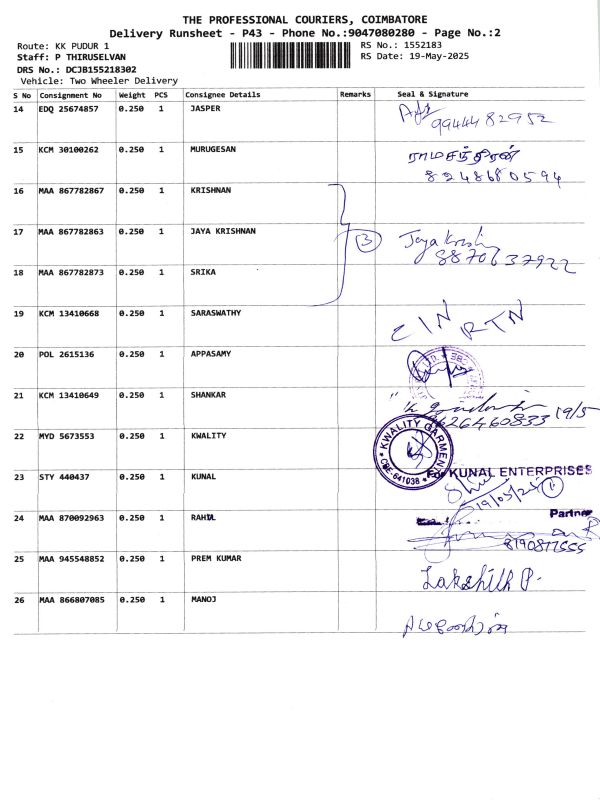 THE PROFESSIONAL COURIERS, COIMBATORE
Delivery Runsheet - P43 - Phone No.:9047080280 - Page No.:2
Route: KK PUDUR 1 RS No.: 1552183
Staff: P THIRUSELVAN RS Date: 19-May-2025
DRS No.: DCJB155218302
Vehicle: Two Wheeler Delivery
S No Consignment No Weight PCS Consignee Details Remarks Seal & Signature
14 EDQ 25674857 0.250 1 JASPER
9944482952
15 KCM 30100262 0.250 1 MURUGESAN ராமசந்திரன்
8248680594
16 MAA 867782867 0.250 1 KRISHNAN
17 MAA 867782863 0.250 1 JAYA KRISHNAN 3 Jaya Krish
8870637922
18 MAA 867782873 0.250 1 SRIKA
19 KCM 13410668 0.250 1 SARASWATHY CIN RTN
20 POL 2615136 0.250 1 APPASAMY
21 KCM 13410649 0.250 1 SHANKAR 19/5
9626460833
22 MYD 5673553 0.250 1 KWALITY KWALITY GARMENT CBE-641038
23 STY 440437 0.250 1 KUNAL For KUNAL ENTERPRISES
19/05/25
24 MAA 870092963 0.250 1 RAHUL Partner
8190877555
25 MAA 945548852 0.250 1 PREM KUMAR Lakshith P.
26 MAA 866807085 0.250 1 MANOJ